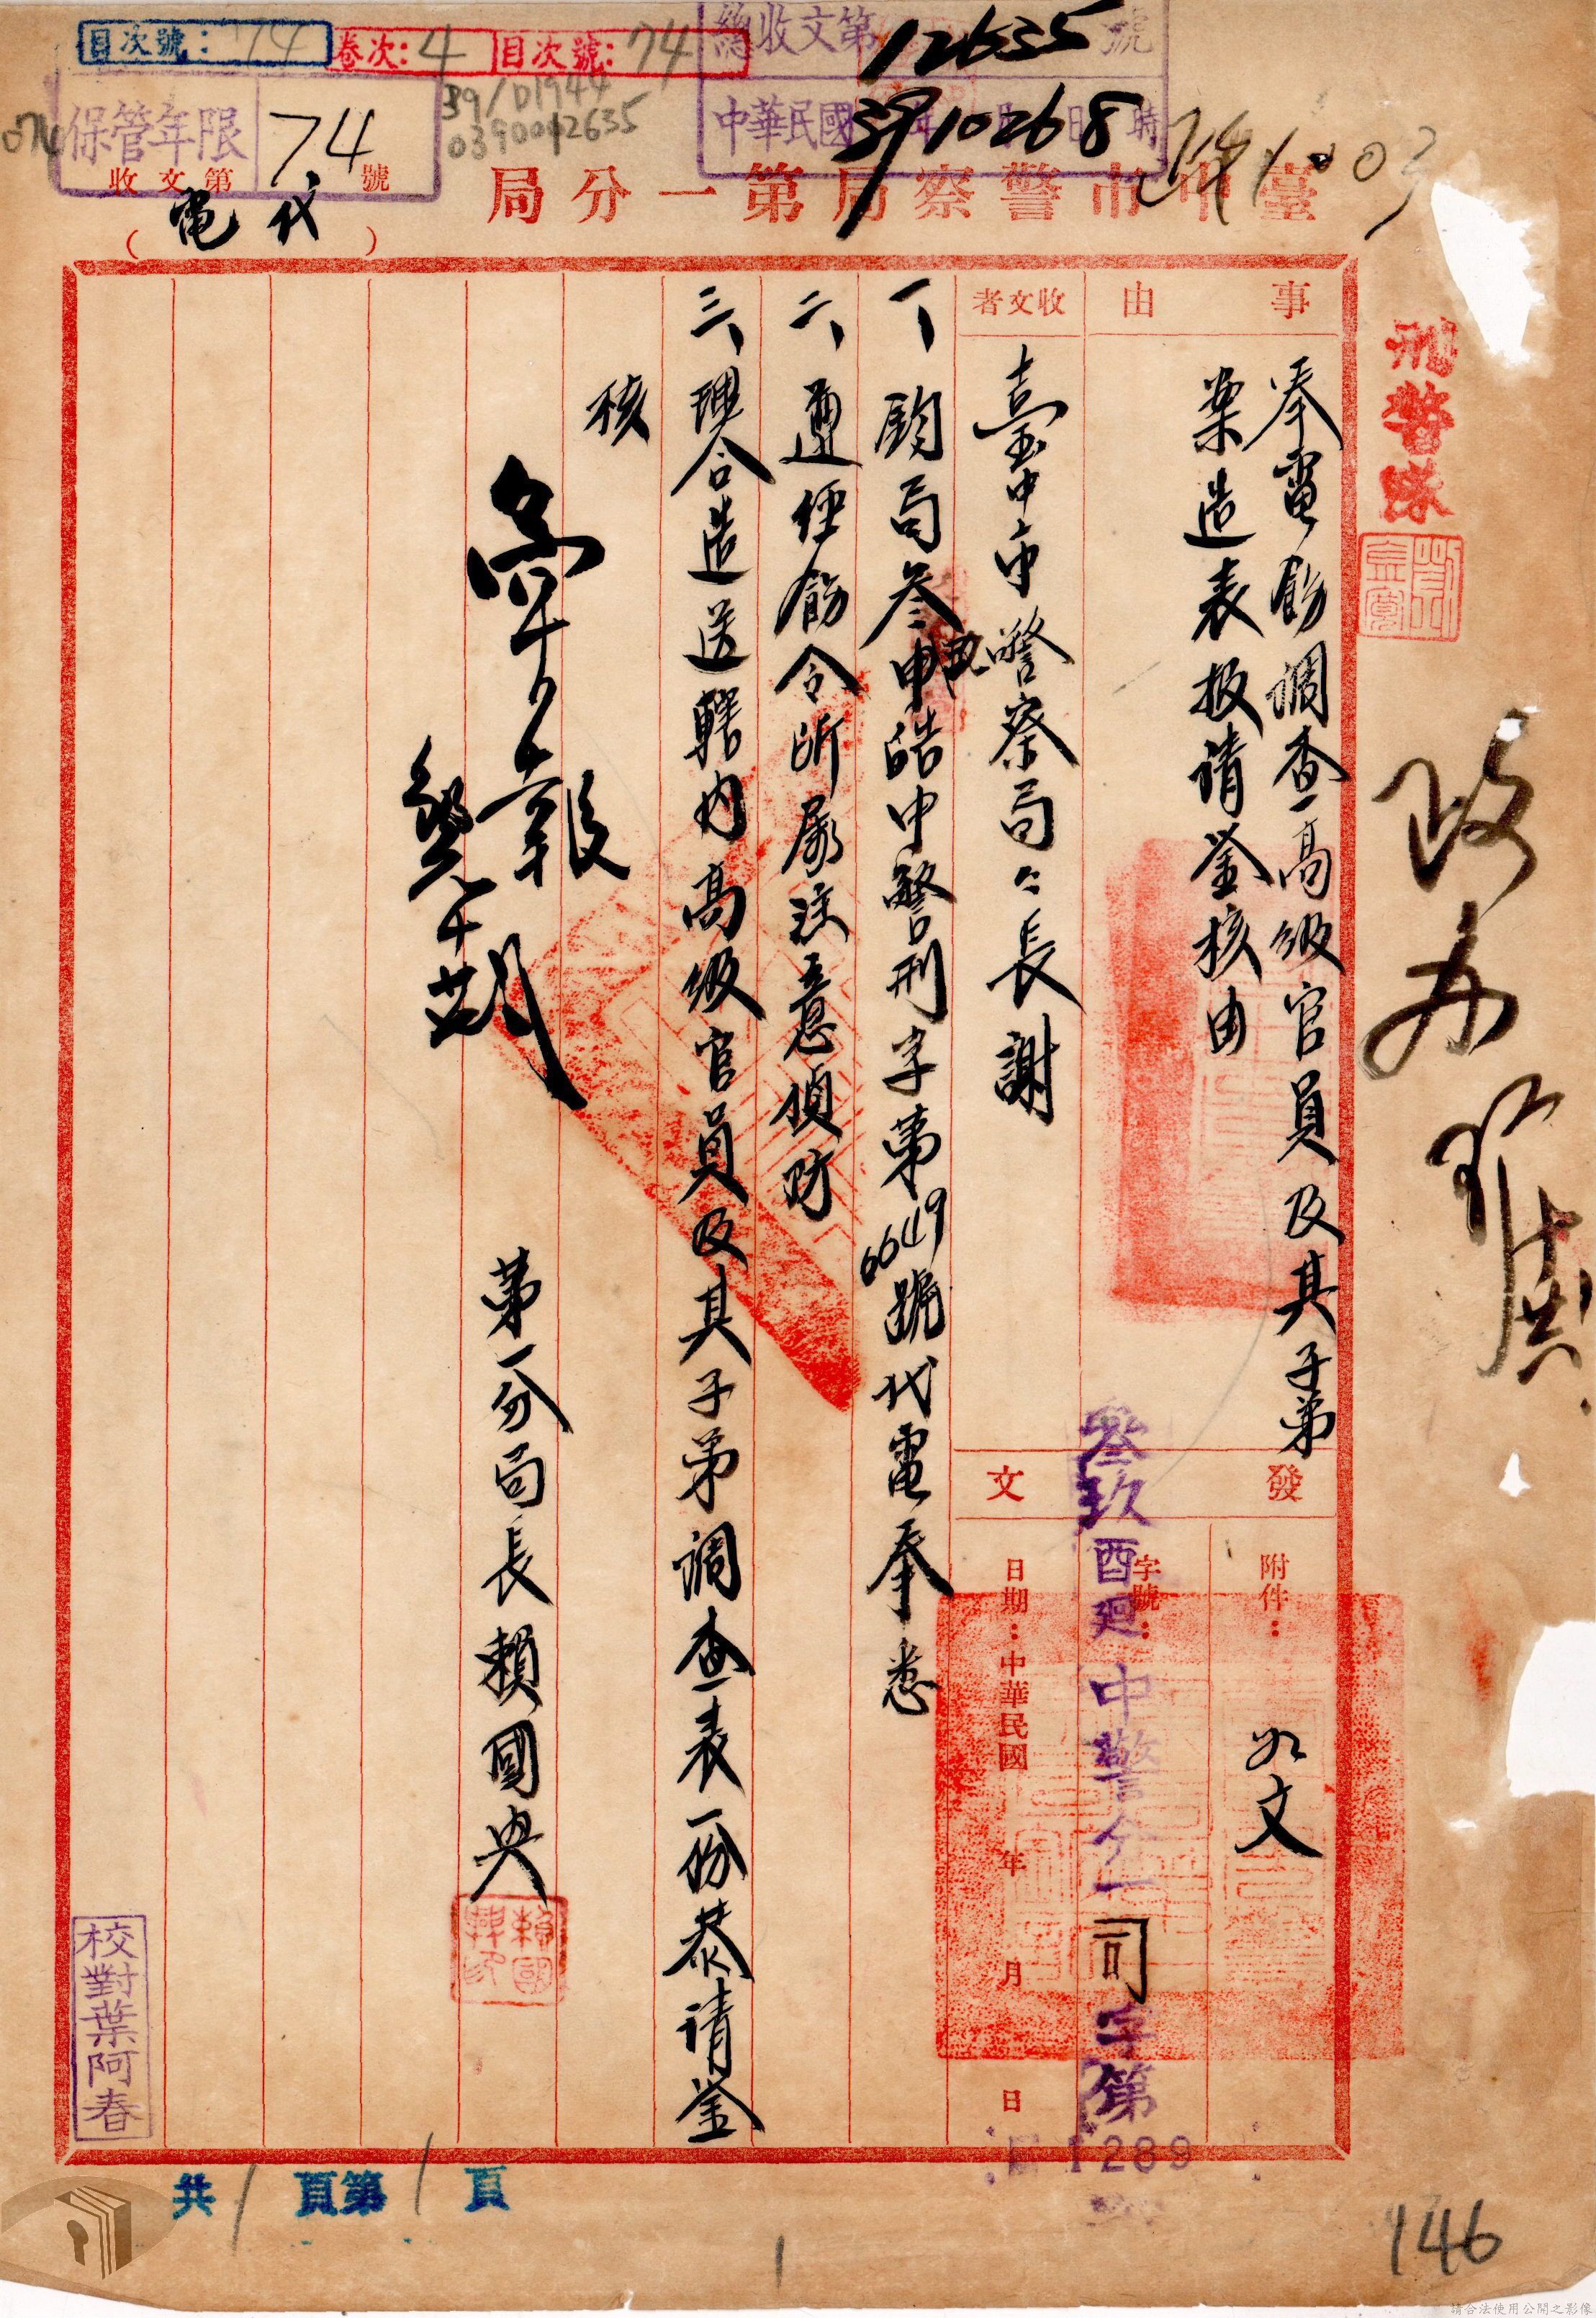 目次號：74
卷次：4 目次號：74
總收文第12635號
中華民國 年 月 日 時
39 10 26 8
39/D1944
0390012635
保管年限 74
收文第 號
(電代)
臺中市警察局第一分局
刑警隊
事由
奉電飭調查高級官員及其子弟
業造表报请鉴核由
收文者
臺中市警察局々長謝
發文
附件：如文
字號：叁玖酉迴中警分一司字第1289
日期：中華民國 年 月 日
一、鈞局叁玖申皓中警刑字第6649號代電奉悉
二、遵經飭令所属注意偵防
三、理合造送轄内高级官員及其子弟調查表一份恭请鉴
核
第一分局長賴國興
校對葉阿春
共1頁第1頁
146
請合法使用公開之影像